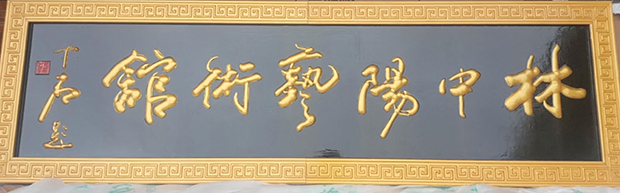 林中陽藝術館
下石題